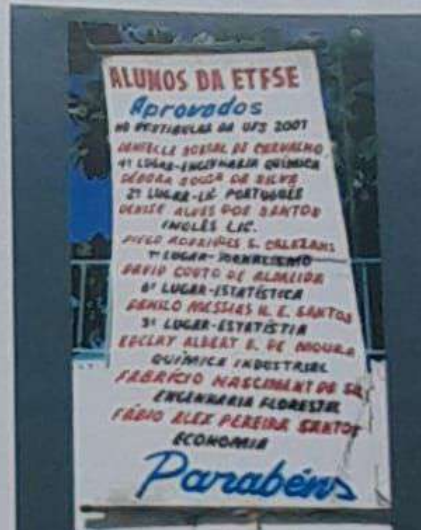 ALUNOS DA ETFSE
Aprovados
NO VESTIBULAR DA UFS 2001
DANIELLE SOBRAL DE CARVALHO
4º LUGAR-ENGENHARIA QUÍMICA
DÉBORA SOUZA DA SILVA
2º LUGAR-LIC PORTUGUÊS
DENISE ALVES DOS SANTOS
INGLÊS LIC.
DIEGO RODRIGUES S. CALAZANS
LUGAR-JORNALISMO
DAVID COUTO DE ALMEIDA
6º LUGAR-ESTATÍSTICA
DANILO MESSIAS E. SANTOS
3º LUGAR-ESTATÍSTIA
ALBERT DE MOURA
QUÍMICA INDUSTRIAL
FABRÍCIO NASCIMENT DE
ENGENHARIA FLORESTAL
FÁBIO ALEX PEREIRA SANTOS
ECONOMIA
Parabéns